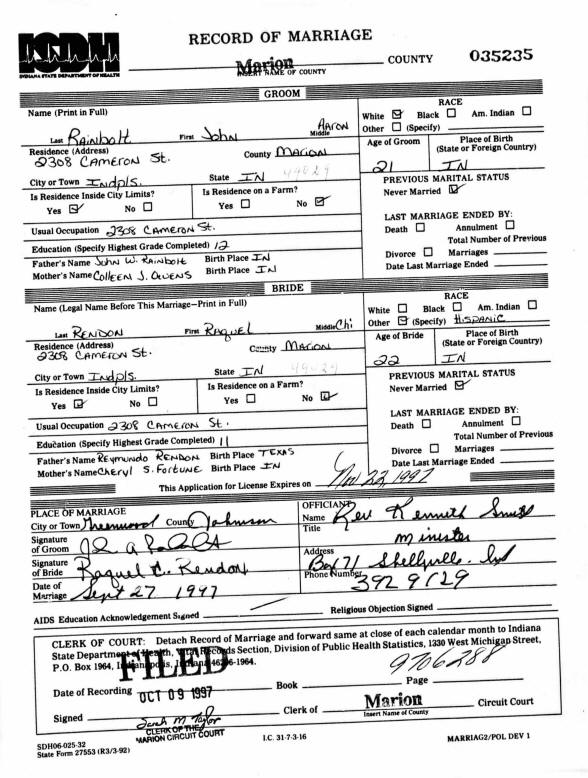 ISDH
INDIANA STATE DEPARTMENT OF HEALTH
RECORD OF MARRIAGE
Marion COUNTY 035235
INSERT NAME OF COUNTY
GROOM
Name (Print in Full)
Last Rainbolt First John Middle Aaron
RACE
White ☑ Black ☐ Am. Indian ☐
Other ☐ (Specify)
Residence (Address) 2308 Cameron St. County Marion
Age of Groom 21
Place of Birth (State or Foreign Country) IN
City or Town Indpls. State IN
Is Residence Inside City Limits? Yes ☑ No ☐
Is Residence on a Farm? Yes ☐ No ☑
PREVIOUS MARITAL STATUS
Never Married ☑
Usual Occupation 2308 Cameron St.
Education (Specify Highest Grade Completed) 12
Father's Name John W. Rainbolt Birth Place IN
Mother's Name Colleen J. Owens Birth Place IN
LAST MARRIAGE ENDED BY:
Death ☐ Annulment ☐
Divorce ☐
Total Number of Previous Marriages
Date Last Marriage Ended
BRIDE
Name (Legal Name Before This Marriage–Print in Full)
Last Rendon First Raquel Middle Chi
RACE
White ☐ Black ☐ Am. Indian ☐
Other ☑ (Specify) Hispanic
Residence (Address) 2308 Cameron St. County Marion
Age of Bride 22
Place of Birth (State or Foreign Country) IN
City or Town Indpls. State IN
Is Residence Inside City Limits? Yes ☑ No ☐
Is Residence on a Farm? Yes ☐ No ☑
PREVIOUS MARITAL STATUS
Never Married ☑
Usual Occupation 2308 Cameron St.
Education (Specify Highest Grade Completed) 11
Father's Name Reymundo Rendon Birth Place Texas
Mother's Name Cheryl S. Fortune Birth Place IN
LAST MARRIAGE ENDED BY:
Death ☐ Annulment ☐
Divorce ☐
Total Number of Previous Marriages
Date Last Marriage Ended
This Application for License Expires on Nov 22, 1997
PLACE OF MARRIAGE
City or Town Greenwood County Johnson
Signature of Groom
Signature of Bride Raquel C. Rendon
Date of Marriage Sept 27 1997
OFFICIANT
Name Rev Kenneth
Title minister
Address Box 71 Shellyville. Ind
Phone Number 392 9129
AIDS Education Acknowledgement Signed
Religious Objection Signed
CLERK OF COURT: Detach Record of Marriage and forward same at close of each calendar month to Indiana
State Department of Health, Vital Records Section, Division of Public Health Statistics, 1330 West Michigan Street,
P.O. Box 1964, Indianapolis, Indiana 46206-1964.
FILED
9706288
Date of Recording OCT 09 1997 Book Page
Signed Sarah M Taylor Clerk of Marion Circuit Court
CLERK OF THE
MARION CIRCUIT COURT
Insert Name of County
SDH06-025-32
State Form 27553 (R3/3-92)
I.C. 31-7-3-16
MARRIAG2/POL DEV 1